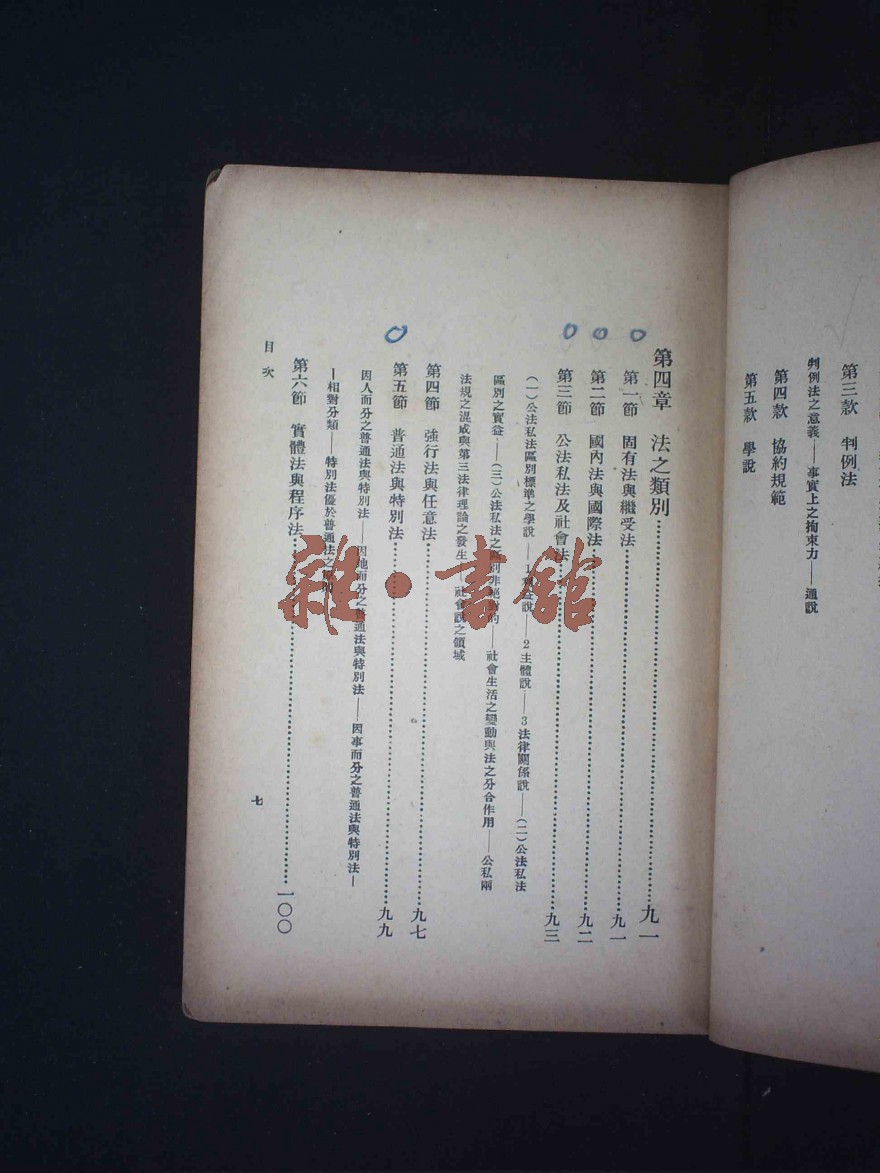 第三款 判例法
判例法之意義——事實上之拘束力——通說
第四款 協約規範
第五款 學說
第四章 法之類別……九一
第一節 固有法與繼受法……九一
第二節 國內法與國際法……九二
第三節 公法私法及社會法……九三
(一)公法私法區別標準之學說——1利益說——2主體說——3法律關係說——(二)公法私法
區別之實益——(三)公法私法之區別非絕對的——社會生活之變動與法之分合作用——公私兩
法規之混成與第三法律理論之發生——社會說之領域
第四節 強行法與任意法……九七
第五節 普通法與特別法……九九
因人而分之普通法與特別法——因地而分之普通法與特別法——因事而分之普通法與特別法—
—相對分類——特別法優於普通法之
第六節 實體法與程序法……一〇〇
目次
七
雜·書館